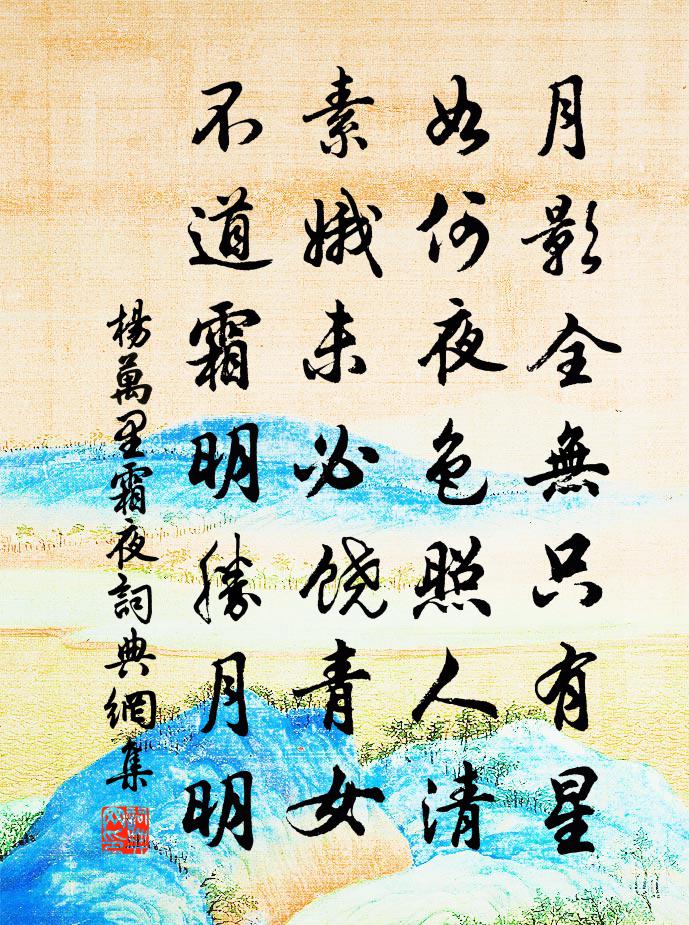 月影全無只有星
如何夜色照人清
素娥未必饒青女
不道霜明勝月明
楊萬里霜夜詞典網集